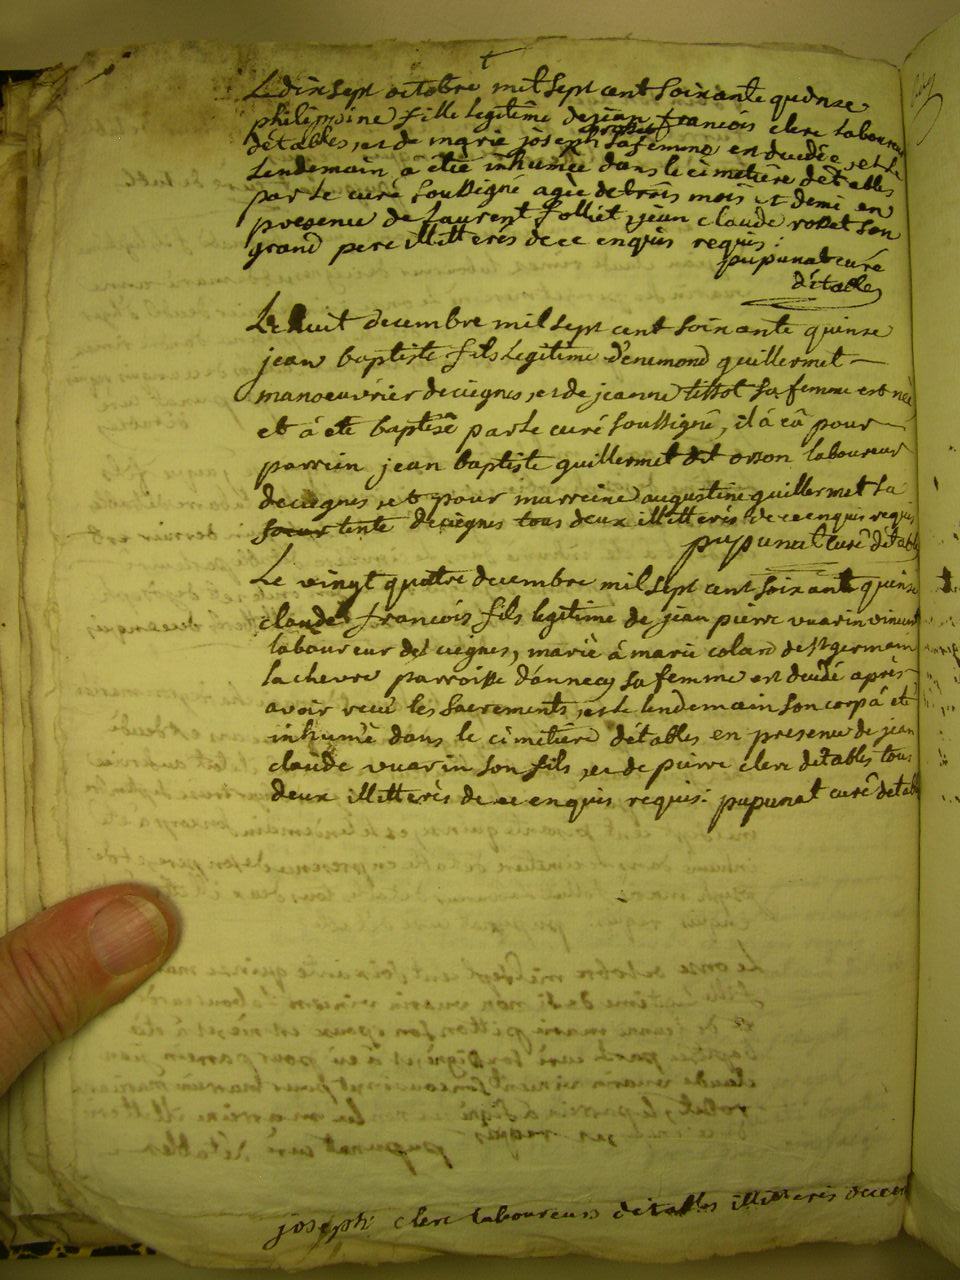 Le dix sept octobre mil sept cent soixante quinse
philippine fille legitime de jean francois clerc laboureur
d'étables, et de marie joseph robet sa femme en decedée, et le
Lendemain à étée inhumée dans le cimetière d'étables
par le curé soussigné agée de trois mois et demi en
presence de Laurent folliet, jean claude robet son
grand pere illitterés de ce enquis requis.
pupunat curé
d'étables
Le huit decembre mil sept cent soixante quinse
jean baptiste fils legitime d'enemond guillermet
manoeuvrier de ciegnes, et de jeanne tissot sa femme est né,
et à eté baptisé par le curé soussigné, il à eû pour
parrein jean baptiste guillermet dit orson laboureur
de ciegnes, et pour marreine augustine guillermet sa
soeur tente de ciegnes tous deux illitterés de ce enquis requis
pupunat curé d'étables
Le vingt quattre decembre mil sept cent soixante quinse
claude francois fils legitime de jean pierre vuarin vincent
laboureur de ciegnes, marié à marie coland de st germain
la chevre parroisse d'annecy sa femme est decedé après
avoir recu les sacrements, et le lendemain son corp à eté
inhumé dans le cimetiere d'étables en presence de jean
claude vuarin son fils, et de pierre clerc d'étables tous
deux illitterés de ce enquis requis. pupunat curé d'étables
joseph clerc laboureur d'étables illitterés de ce en